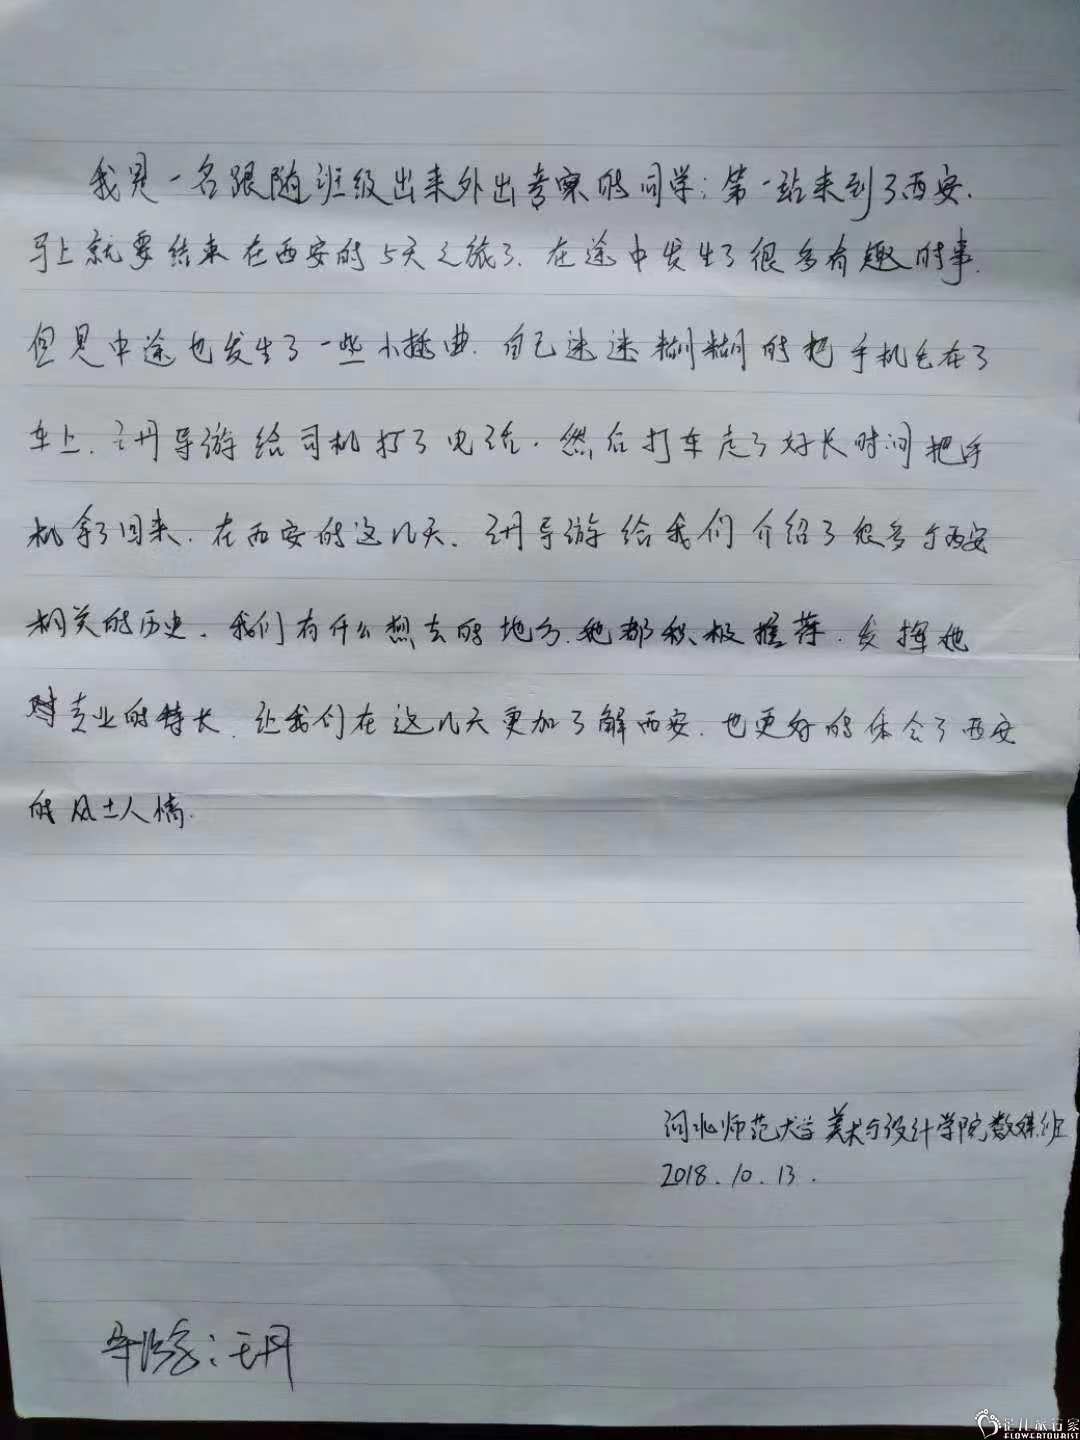 我是一名跟随班级出来外出考察的同学；第一站来到了西安.
马上就要结束在西安的5天之旅了.在途中发生了很多有趣的事.
但是中途也发生了一些小插曲.自己迷迷糊糊的把手机忘在了
车上.王丹导游给司机打了电话.然后打车走了好长时间把手
机拿了回来.在西安的这几天.王丹导游给我们介绍了很多与西安
相关的历史.我们有什么想去的地方.她都积极推荐.发挥她
对专业的特长.让我们在这几天更加了解西安.也更好的体会了西安
的风土人情.
河北师范大学美术与设计学院数媒班
2018.10.13.
导游：王丹
花儿旅行家
FLOWERTOURIST